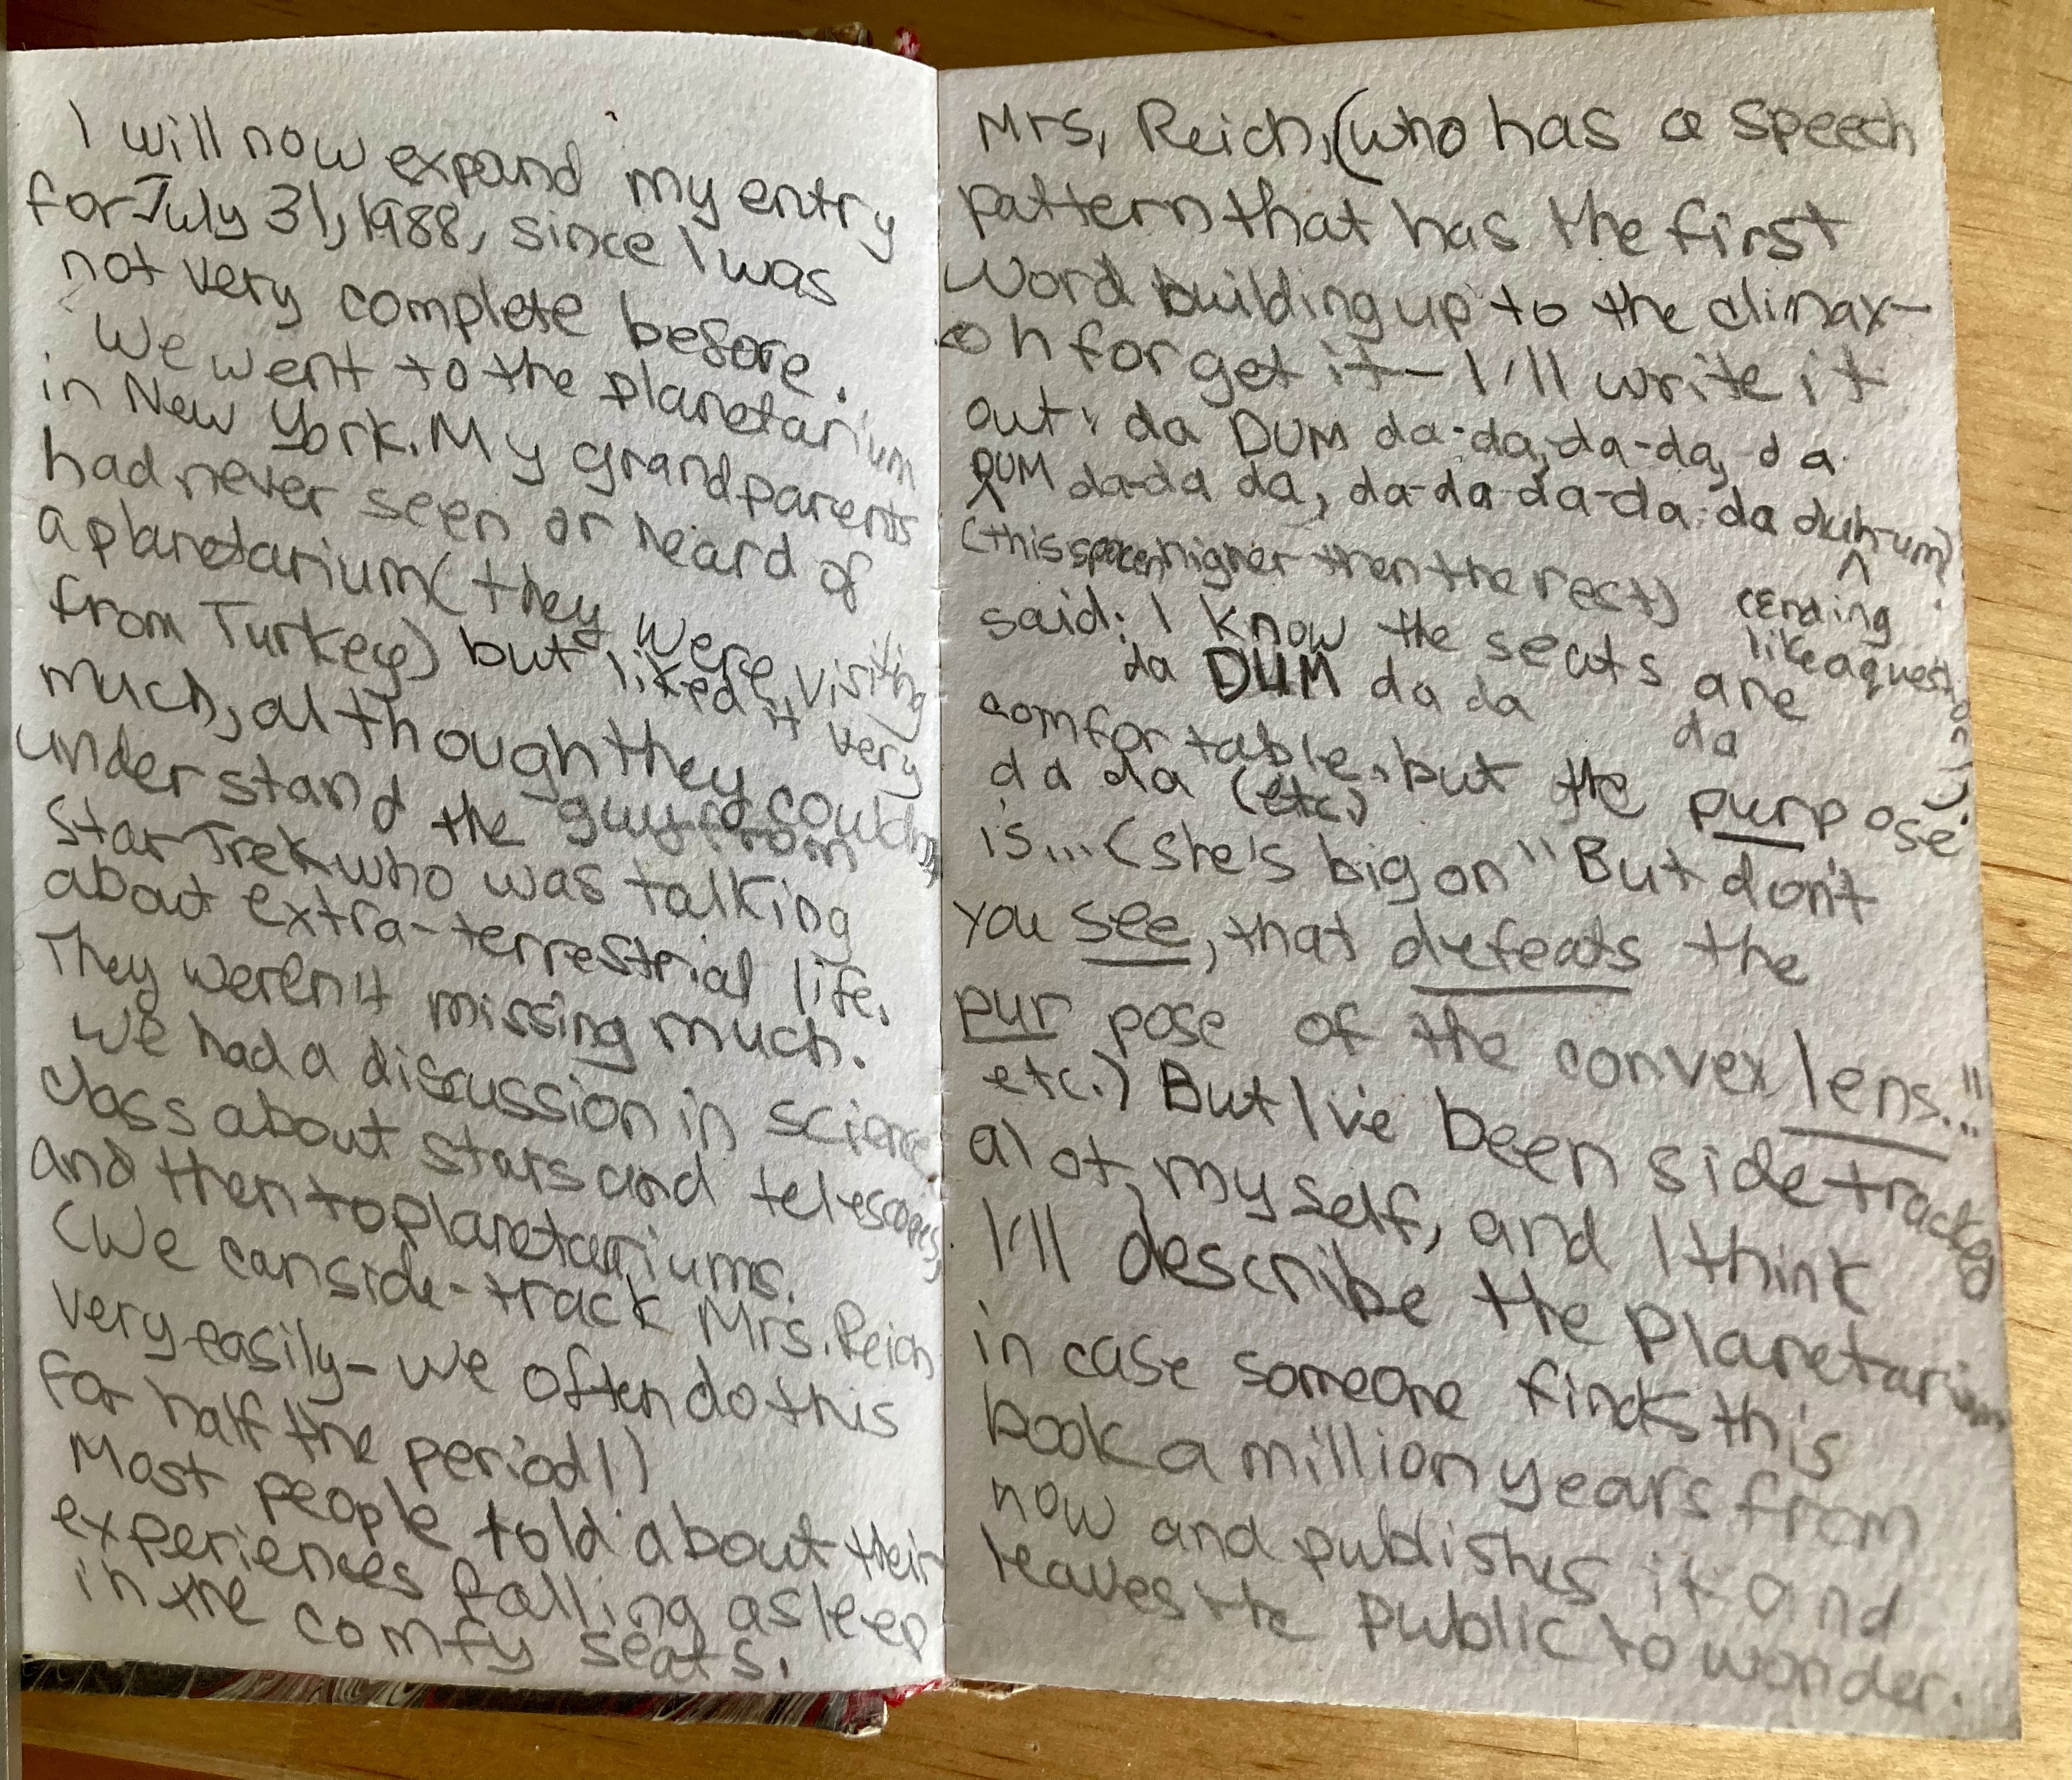 I will now expand my entry
for July 31, 1988, since I was
not very complete before.
We went to the planetarium
in New York. My grandparents
had never seen or heard of
a planetarium (they were visiting
from Turkey) but liked it very
much, although they couldn't
understand the guy from
Star Trek who was talking
about extra-terrestrial life.
They weren't missing much.
We had a discussion in science
class about stars and telescopes,
and then to planetariums.
(We can side-track Mrs. Reich
very easily - we often do this
for half the period!)
Most people told about their
experiences falling asleep
in the comfy seats.
Mrs. Reich, (who has a speech
pattern that has the first
word building up to the climax-
oh forget it - I'll write it
out: da DUM da-da, da-da, da
DUM da-da da, da-da-da-da-da duh-um)
(this spoken higher then the rest) (Ending
like a question)
said: I know the seats are
da DUM da da da
comfortable, but the purpose
da da da (etc.)
is... (she's big on "But don't
you see, that defeats the
pur pose of the convex lens..."
etc.) But I've been side tracked
alot, myself, and I think
I'll describe the Planetarium
in case someone finds this
book a million years from
now and publishes it and
leaves the public to wonder.